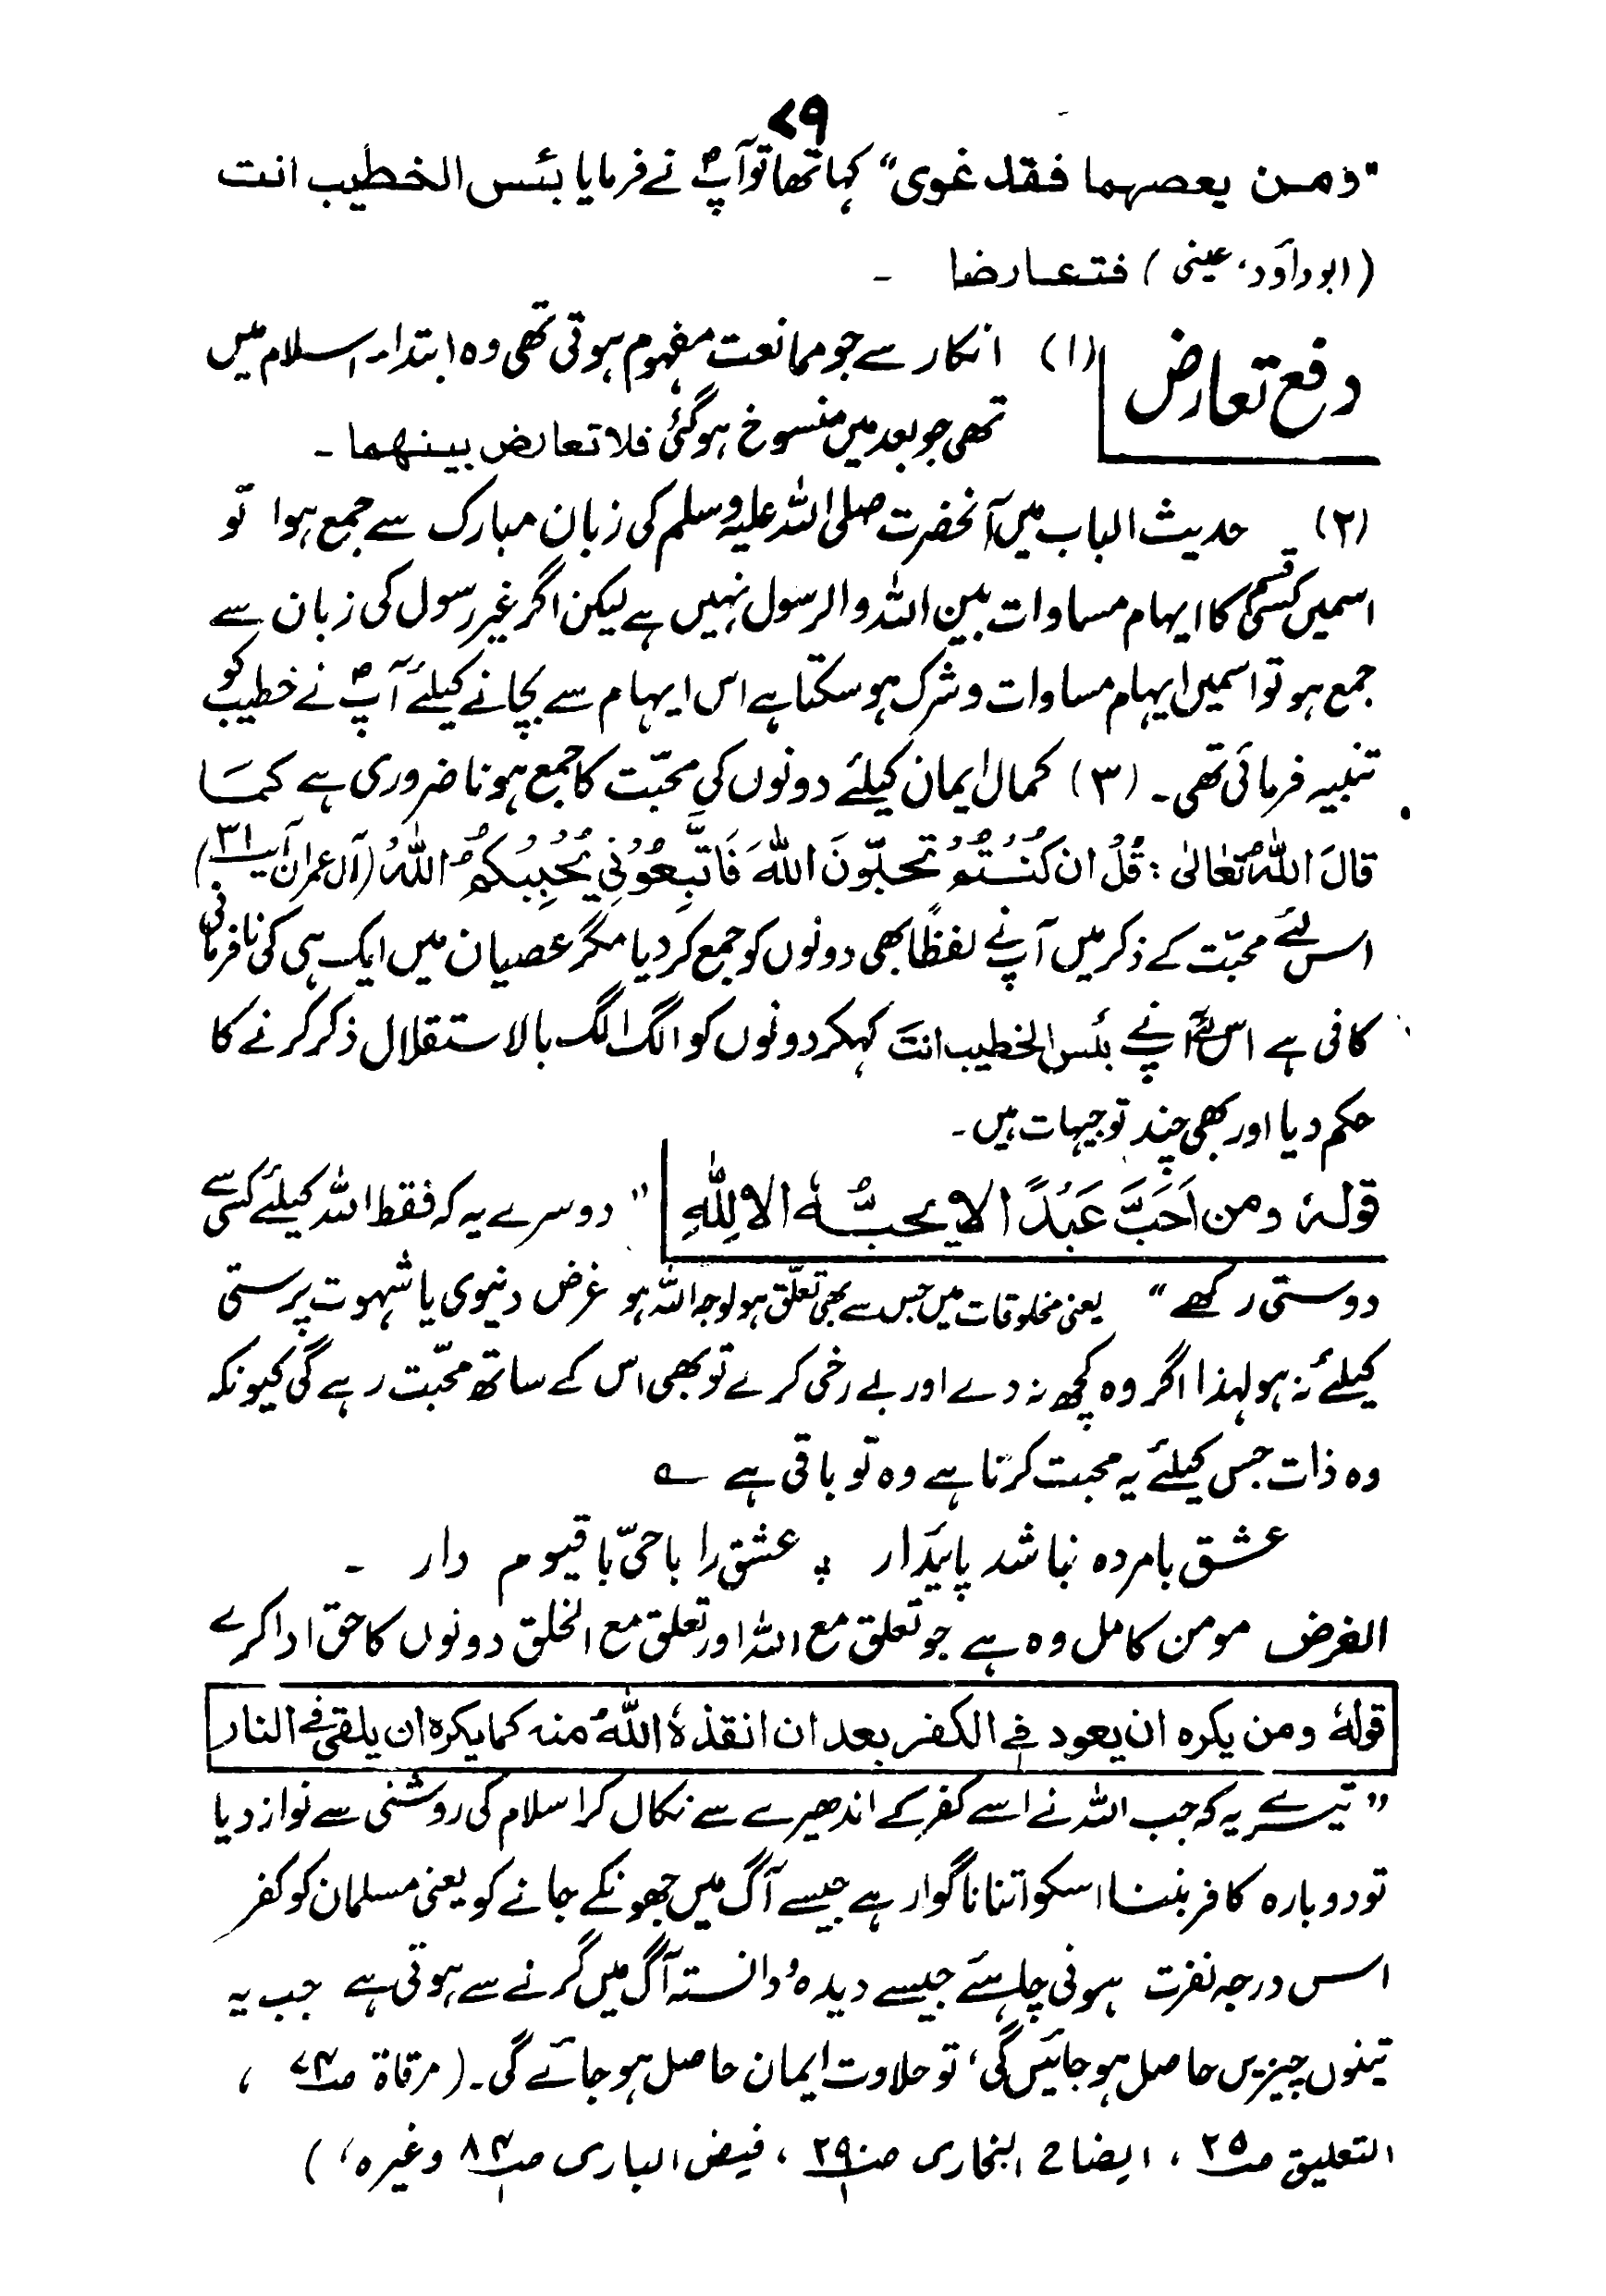 ۷۹
"ومن یعصہما فقد غوی" کہا تھا تو آپؐ نے فرمایا بئس الخطیب انت
(ابوداؤد، عینی) فتعارضا ۔
دفع تعارض (۱) انکار سے جو ممانعت مفہوم ہوتی تھی وہ ابتداء اسلام میں
تھی جو بعد میں منسوخ ہوگئی فلا تعارض بینھما ۔
(۲) حدیث الباب میں آنحضرت صلی اللہ علیہ وسلم کی زبان مبارک سے جمع ہوا تو
اسمیں کسی قسم کا ایہام مساوات بین اللہ والرسول نہیں ہے لیکن اگر غیر رسول کی زبان سے
جمع ہو تو اسمیں ایہام مساوات و شرک ہو سکتا ہے اس ایہام سے بچانے کیلئے آپؐ نے خطیب کو
تنبیہ فرمائی تھی ۔ (۳) کمال ایمان کیلئے دونوں کی محبّت کا جمع ہونا ضروری ہے کمَا
قالَ اللہُ تعَالٰی : قُلْ ان کُنْتُمْ تحبّونَ اللہَ فَاتَّبِعُوْنِی یُحْبِبْکُمُ اللہُ (آل عمران آیت ۳۱)
اس لئے محبّت کے ذکر میں آپ نے لفظًا بھی دونوں کو جمع کر دیا مگر عصیان میں ایک ہی کی نافرمانی
کافی ہے اس لئے آپ نے بئس الخطیب انتَ کہکر دونوں کو الگ الگ بالاستقلال ذکر کرنے کا
حکم دیا اور بھی چند توجیہات ہیں ۔
قولہٗ ومن اَحَبَّ عَبْدًا لا یحبُّہٗ الا لِلّٰہِ " دوسرے یہ کہ فقط اللہ کیلئے کسی سے
دوستی رکھے " یعنی مخلوقات میں جس سے بھی تعلّق ہو لوجہ اللہ ہو غرض دنیوی یا شہوت پرستی
کیلئے نہ ہو لہذا اگر وہ کچھ نہ دے اور بے رخی کرے تو بھی اس کے ساتھ محبّت رہے گی کیونکہ
وہ ذات جس کیلئے یہ محبت کرتا ہے وہ تو باقی ہے ؎
عشق با مردہ نباشد پائیدار ٭ عشق را باحیّ باقیوم دار ۔
الغرض مومن کامل وہ ہے جو تعلق مع اللہ اور تعلق مع الخلق دونوں کا حق ادا کرے
قولہٗ ومن یکرہ ان یعود فی الکفر بعد ان انقذہٗ اللہُ منہ کما یکرہ ان یلقی فی النار
" تیسرے یہ کہ جب اللہ نے اسے کفر کے اندھیرے سے نکال کر اسلام کی روشنی سے نواز دیا
تو دوبارہ کافر بننا اسکو اتنا ناگوار ہے جیسے آگ میں جھونکے جانے کو یعنی مسلمان کو کفر
اس درجہ نفرت ہونی چاہئے جیسے دیدہ و دانستہ آگ میں گرنے سے ہوتی ہے جب یہ
تینوں چیزیں حاصل ہو جائیں گی، تو حلاوت ایمان حاصل ہو جائے گی ۔ (مرقاۃ ص ،
التعلیق ص ۲۵ ، ایضاح البخاری ص ۲۹۱ ، فیض الباری ص ۸۴/۱ وغیرہ، )